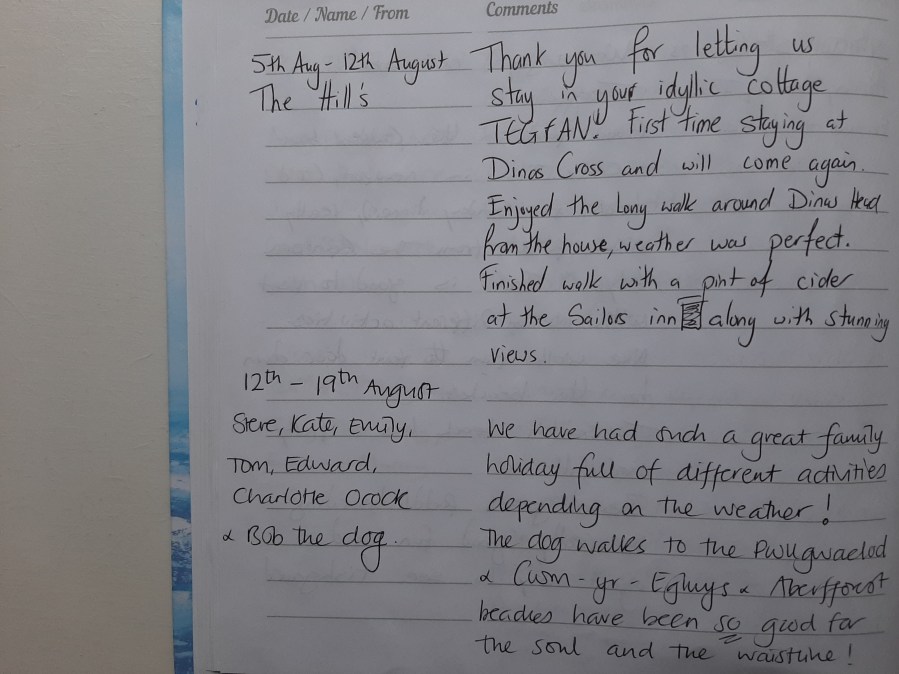 Date / Name / From
Comments
5th Aug - 12th August
The Hill's
Thank you for letting us
stay in your idyllic cottage
TEGFAN! First time staying at
Dinas Cross and will come again.
Enjoyed the Long walk around Dinas Head
from the house, weather was perfect.
Finished walk with a pint of cider
at the Sailors inn along with stunning
views.
12th - 19th August
Steve, Kate, Emily,
Tom, Edward,
Charlotte Ocock
& Bob the dog.
We have had such a great family
holiday full of different activities
depending on the weather!
The dog walks to the Pwllgwaelod
& Cwm-yr-Eglwys & Aberfforest
beaches have been so good for
the soul and the waistline!